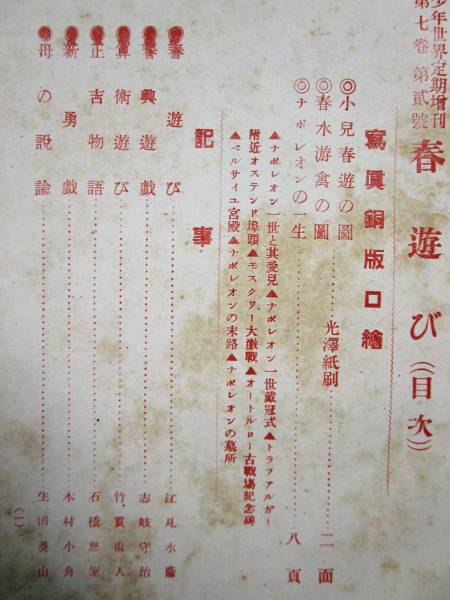 少年世界定期増刊
第七卷第貳號
春遊び(目次)
寫眞銅版口繪
◎小兒春遊の圖
◎春水游禽の圖
光澤紙刷……二面
◎ナポレオンの一生……八頁
▲ナポレオン一世と其愛兒▲ナポレオン一世戴冠式▲トラファルガー
附近オステンド埠頭▲モスクワー大激戰▲オートルロー古戰場紀念碑
▲ベルサイユ宮殿▲ナポレオンの末路▲ナポレオンの墓所
記事
春遊び……江見水蔭
興遊戯……志岐守治
算術遊び……竹貫直人
正吉物語……石橋思案
新勇戯……木村小舟
母の說諭……生田葵山
(一)